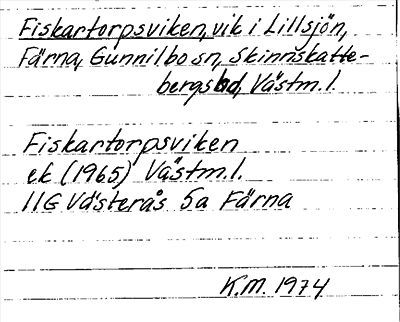 Fiskartorpsviken, vik i Lillsjön,
Färna, Gunnilbo sn, Skinnskatte-
bergs hd, Västm.l.
Fiskartorpsviken
ek (1965) Västm.l.
11G Västerås 5a Färna
K.M. 1974